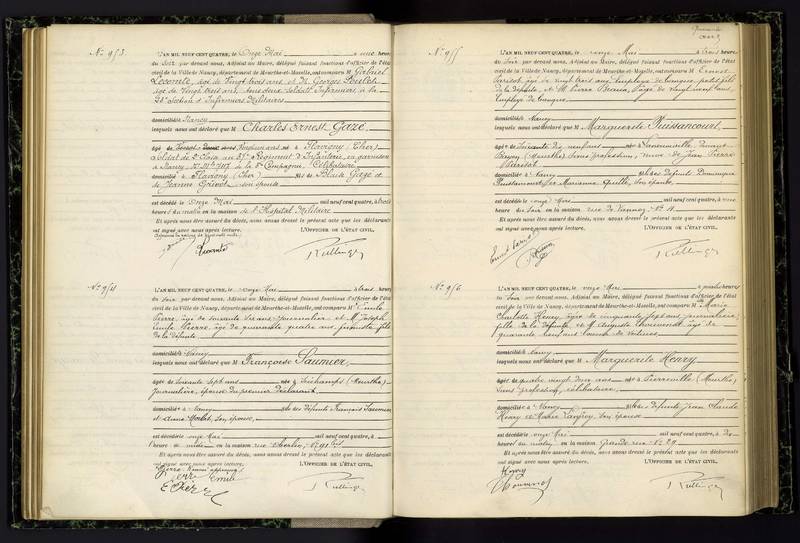 N° 913
L'AN MIL NEUF CENT QUATRE, le Onze Mai à une heure
du Soir par devant nous, Adjoint au Maire, délégué faisant fonctions d'officier de l'état
civil de la Ville de Nancy, département de Meurthe-et-Moselle, ont comparu M Gabriel
Lecomte, âgé de Vingt trois ans et M. Georges
âgé de Vingt trois ans, tous deux Soldats Infirmiers à la
23e Section d'Infirmiers Militaires
domiciliés à Nancy
lesquels nous ont déclaré que M Charles Ernest Gazé,
âgé de Vingt un ans né à Flavigny (Cher)
Soldat de 2e Classe au 37e Régiment d'Infanterie, en garnison
à Nancy, de la 8e Compagnie, Célibataire
domicilié à Flavigny (Cher) fils de Blaise Gazé et
de Jeanne Grivot, son épouse
est décédé le Onze Mai mil neuf cent quatre, à trois
heures du matin en la maison de l'Hôpital Militaire
Et après nous être assuré du décès, nous avons dressé le présent acte que les déclarants
ont signé avec nous après lecture. L'OFFICIER DE L'ÉTAT CIVIL,
Lecomte
N° 914
L'AN MIL NEUF CENT QUATRE, le onze Mai à trois heures
du Soir par devant nous, Adjoint au Maire, délégué faisant fonctions d'officier de l'état
civil de la Ville de Nancy, département de Meurthe-et-Moselle, ont comparu M Emile
Pierre, âgé de soixante six ans, journalier et M. Joseph
Emile Pierre, âgé de quarante quatre ans, fils
de la défunte
domiciliés à Nancy
lesquels nous ont déclaré que M Françoise Saunier,
âgée de soixante sept ans née à Séichamps (Meurthe)
journalière, épouse du premier déclarant
domiciliée à Nancy fille des défunts François Saunier
et Anne son épouse
est décédée onze Mai mil neuf cent quatre, à
heure de midi en la maison rue Oberlin, N° 91 bis
Et après nous être assuré du décès, nous avons dressé le présent acte que les déclarants
ont signé avec nous après lecture. L'OFFICIER DE L'ÉTAT CIVIL,
Pierre Emile
N° 915
L'AN MIL NEUF CENT QUATRE, le onze Mai à trois heures
du Soir par devant nous, Adjoint au Maire, délégué faisant fonctions d'officier de l'état
civil de la Ville de Nancy, département de Meurthe-et-Moselle, ont comparu M Ernest
Parisot, âgé de vingt trois ans, Employé de Commerce, petit-fils
de la défunte, et M. Pierre âgé de vingt neuf ans,
Employé de Commerce
domiciliés à Nancy
lesquels nous ont déclaré que M Marguerite Puissancourt,
âgée de soixante dix neuf ans née à
(Meurthe) Sans profession, veuve de Jean Pierre
Parisot
domiciliée à Nancy fille des défunts Dominique
Puissancourt et Marianne son épouse
est décédée onze Mai mil neuf cent quatre, à une
heure du Soir en la maison rue de N° 4
Et après nous être assuré du décès, nous avons dressé le présent acte que les déclarants
ont signé avec nous après lecture. L'OFFICIER DE L'ÉTAT CIVIL,
Ernest Parisot
N° 916
L'AN MIL NEUF CENT QUATRE, le onze Mai à quatre heures
du Soir par devant nous, Adjoint au Maire, délégué faisant fonctions d'officier de l'état
civil de la Ville de Nancy, département de Meurthe-et-Moselle, ont comparu M Marie
Charlotte Henry, âgée de cinquante sept ans, journalière
fille de la défunte, et M. Auguste Thouvenot âgé de
quarante neuf ans, loueur de voitures
domiciliés à Nancy
lesquels nous ont déclaré que M Marguerite Henry
âgée de quatre vingt deux ans née à Pierreville (Meurthe)
Sans profession, célibataire
domiciliée à Nancy fille des défunts Jean Claude
Henry et Marie son épouse
est décédée onze Mai mil neuf cent quatre, à dix
heures du matin en la maison Grande rue N° 29
Et après nous être assuré du décès, nous avons dressé le présent acte que les déclarants
ont signé avec nous après lecture. L'OFFICIER DE L'ÉTAT CIVIL,
Henry
Thouvenot